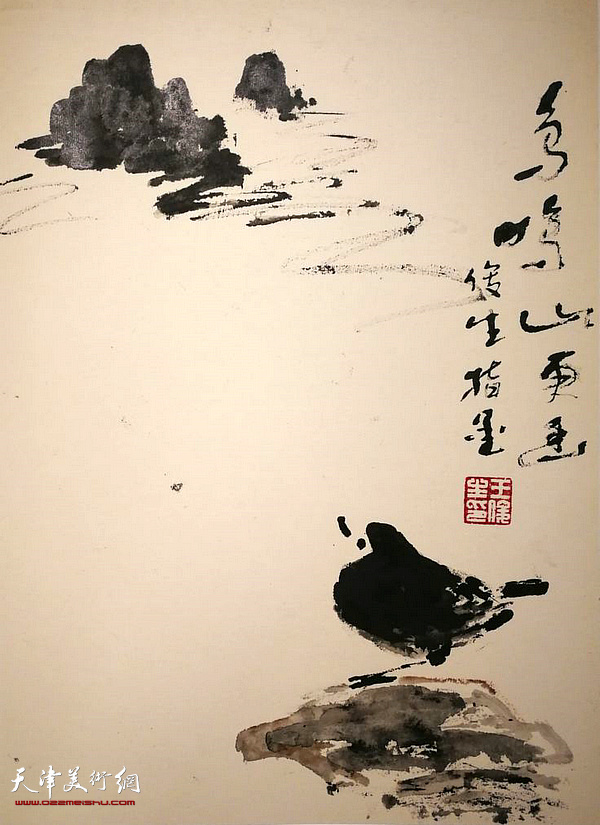 鸟鸣山更幽
俊生指墨
王俊生印
天津美術網
www.022meishu.com